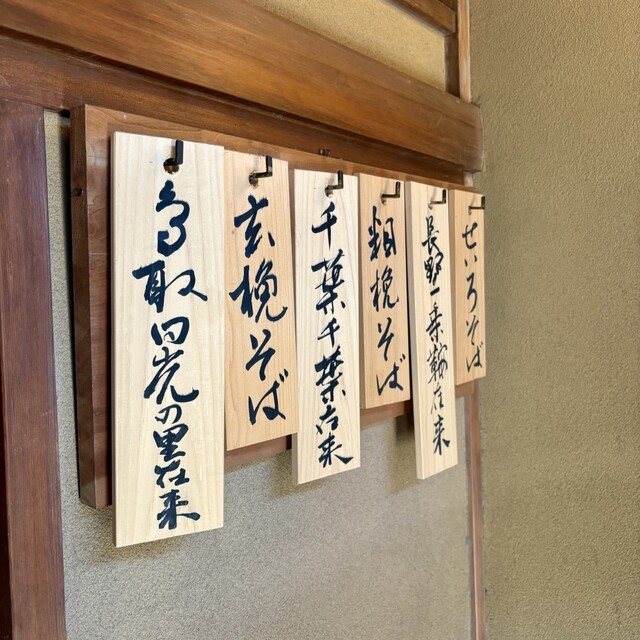 せいろそば
長野乗鞍在来
粗挽そば
千葉千葉在来
玄挽そば
鳥取日光の里在来